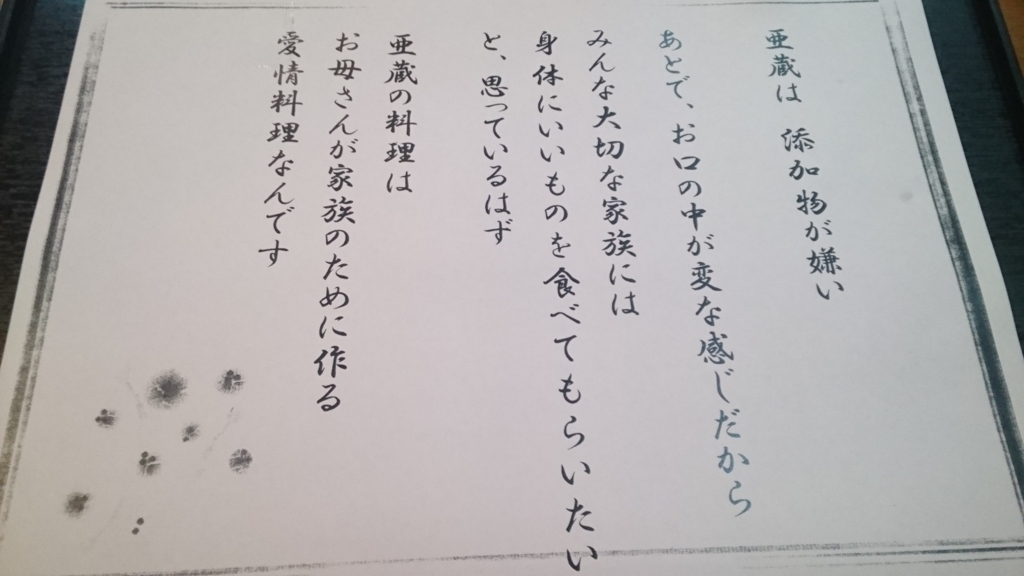 亜蔵は 添加物が嫌い
あとで、お口の中が変な感じだから
みんな大切な家族には
身体にいいものを食べてもらいたい
と、思っているはず
亜蔵の料理は
お母さんが家族のために作る
愛情料理なんです